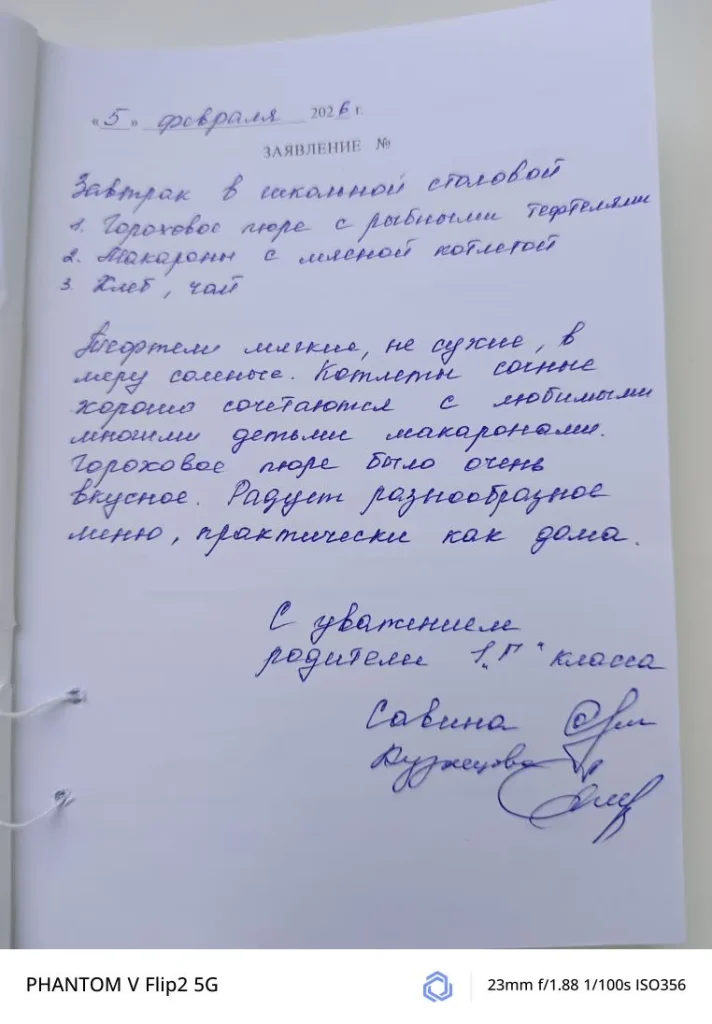 «5» февраля 2026 г.
ЗАЯВЛЕНИЕ №
Завтрак в школьной столовой
1. Гороховое пюре с рыбными тефтелями
2. Макароны с мясной котлетой
3. Хлеб, чай
Тефтели мягкие, не сухие, в
меру соленые. Котлеты сочные
хорошо сочетаются с любимыми
многими детьми макаронами.
Гороховое пюре было очень
вкусное. Радует разнообразное
меню, практически как дома.
С уважением
родители 1„Г" класса
Савина
Кузнецова
PHANTOM V Flip2 5G
23mm f/1.88 1/100s ISO356